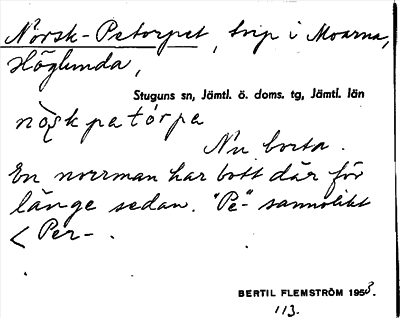 Norsk-Petorpet, trp i Moarna,
Höglunda,
Stuguns sn, Jämtl. ö. doms. tg, Jämtl. län
Nu borta.
En norrman har bott där för
länge sedan. "Pe-" sannolikt
< Per-.
BERTIL FLEMSTRÖM 1953.
113.